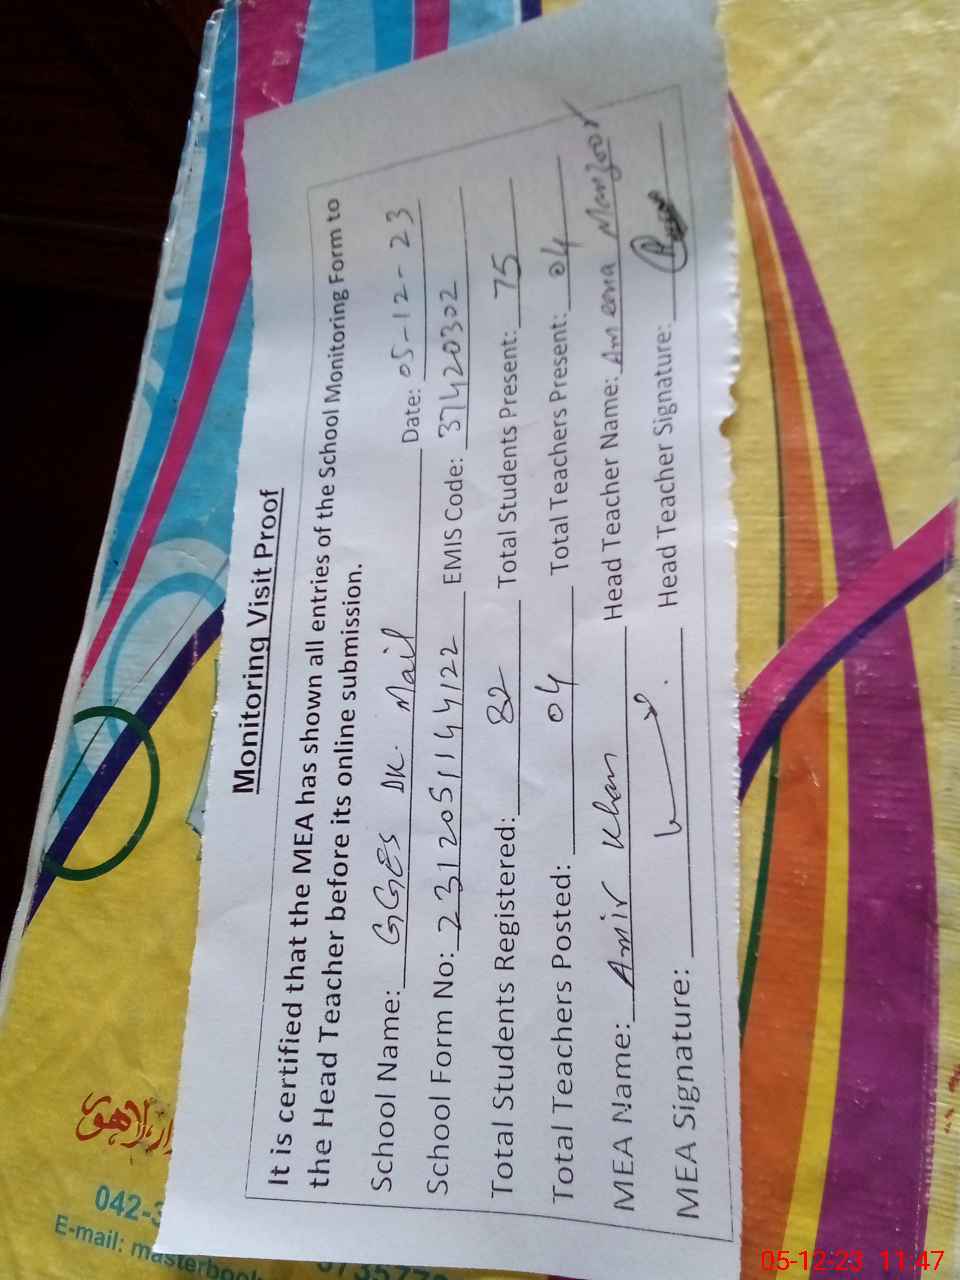 Monitoring Visit Proof
It is certified that the MEA has shown all entries of the School Monitoring Form to
the Head Teacher before its online submission.
School Name: GGES DK. Mail Date: 05-12-23
School Form No: 2312051144122 EMIS Code: 37420302
Total Students Registered: 82 Total Students Present: 75
Total Teachers Posted: 04 Total Teachers Present: 04
MEA Name: Amir Khan Head Teacher Name: Ameena Manzoor
MEA Signature: Head Teacher Signature:
لاہور
042-3
E-mail: masterbook
05-12-23 11:47